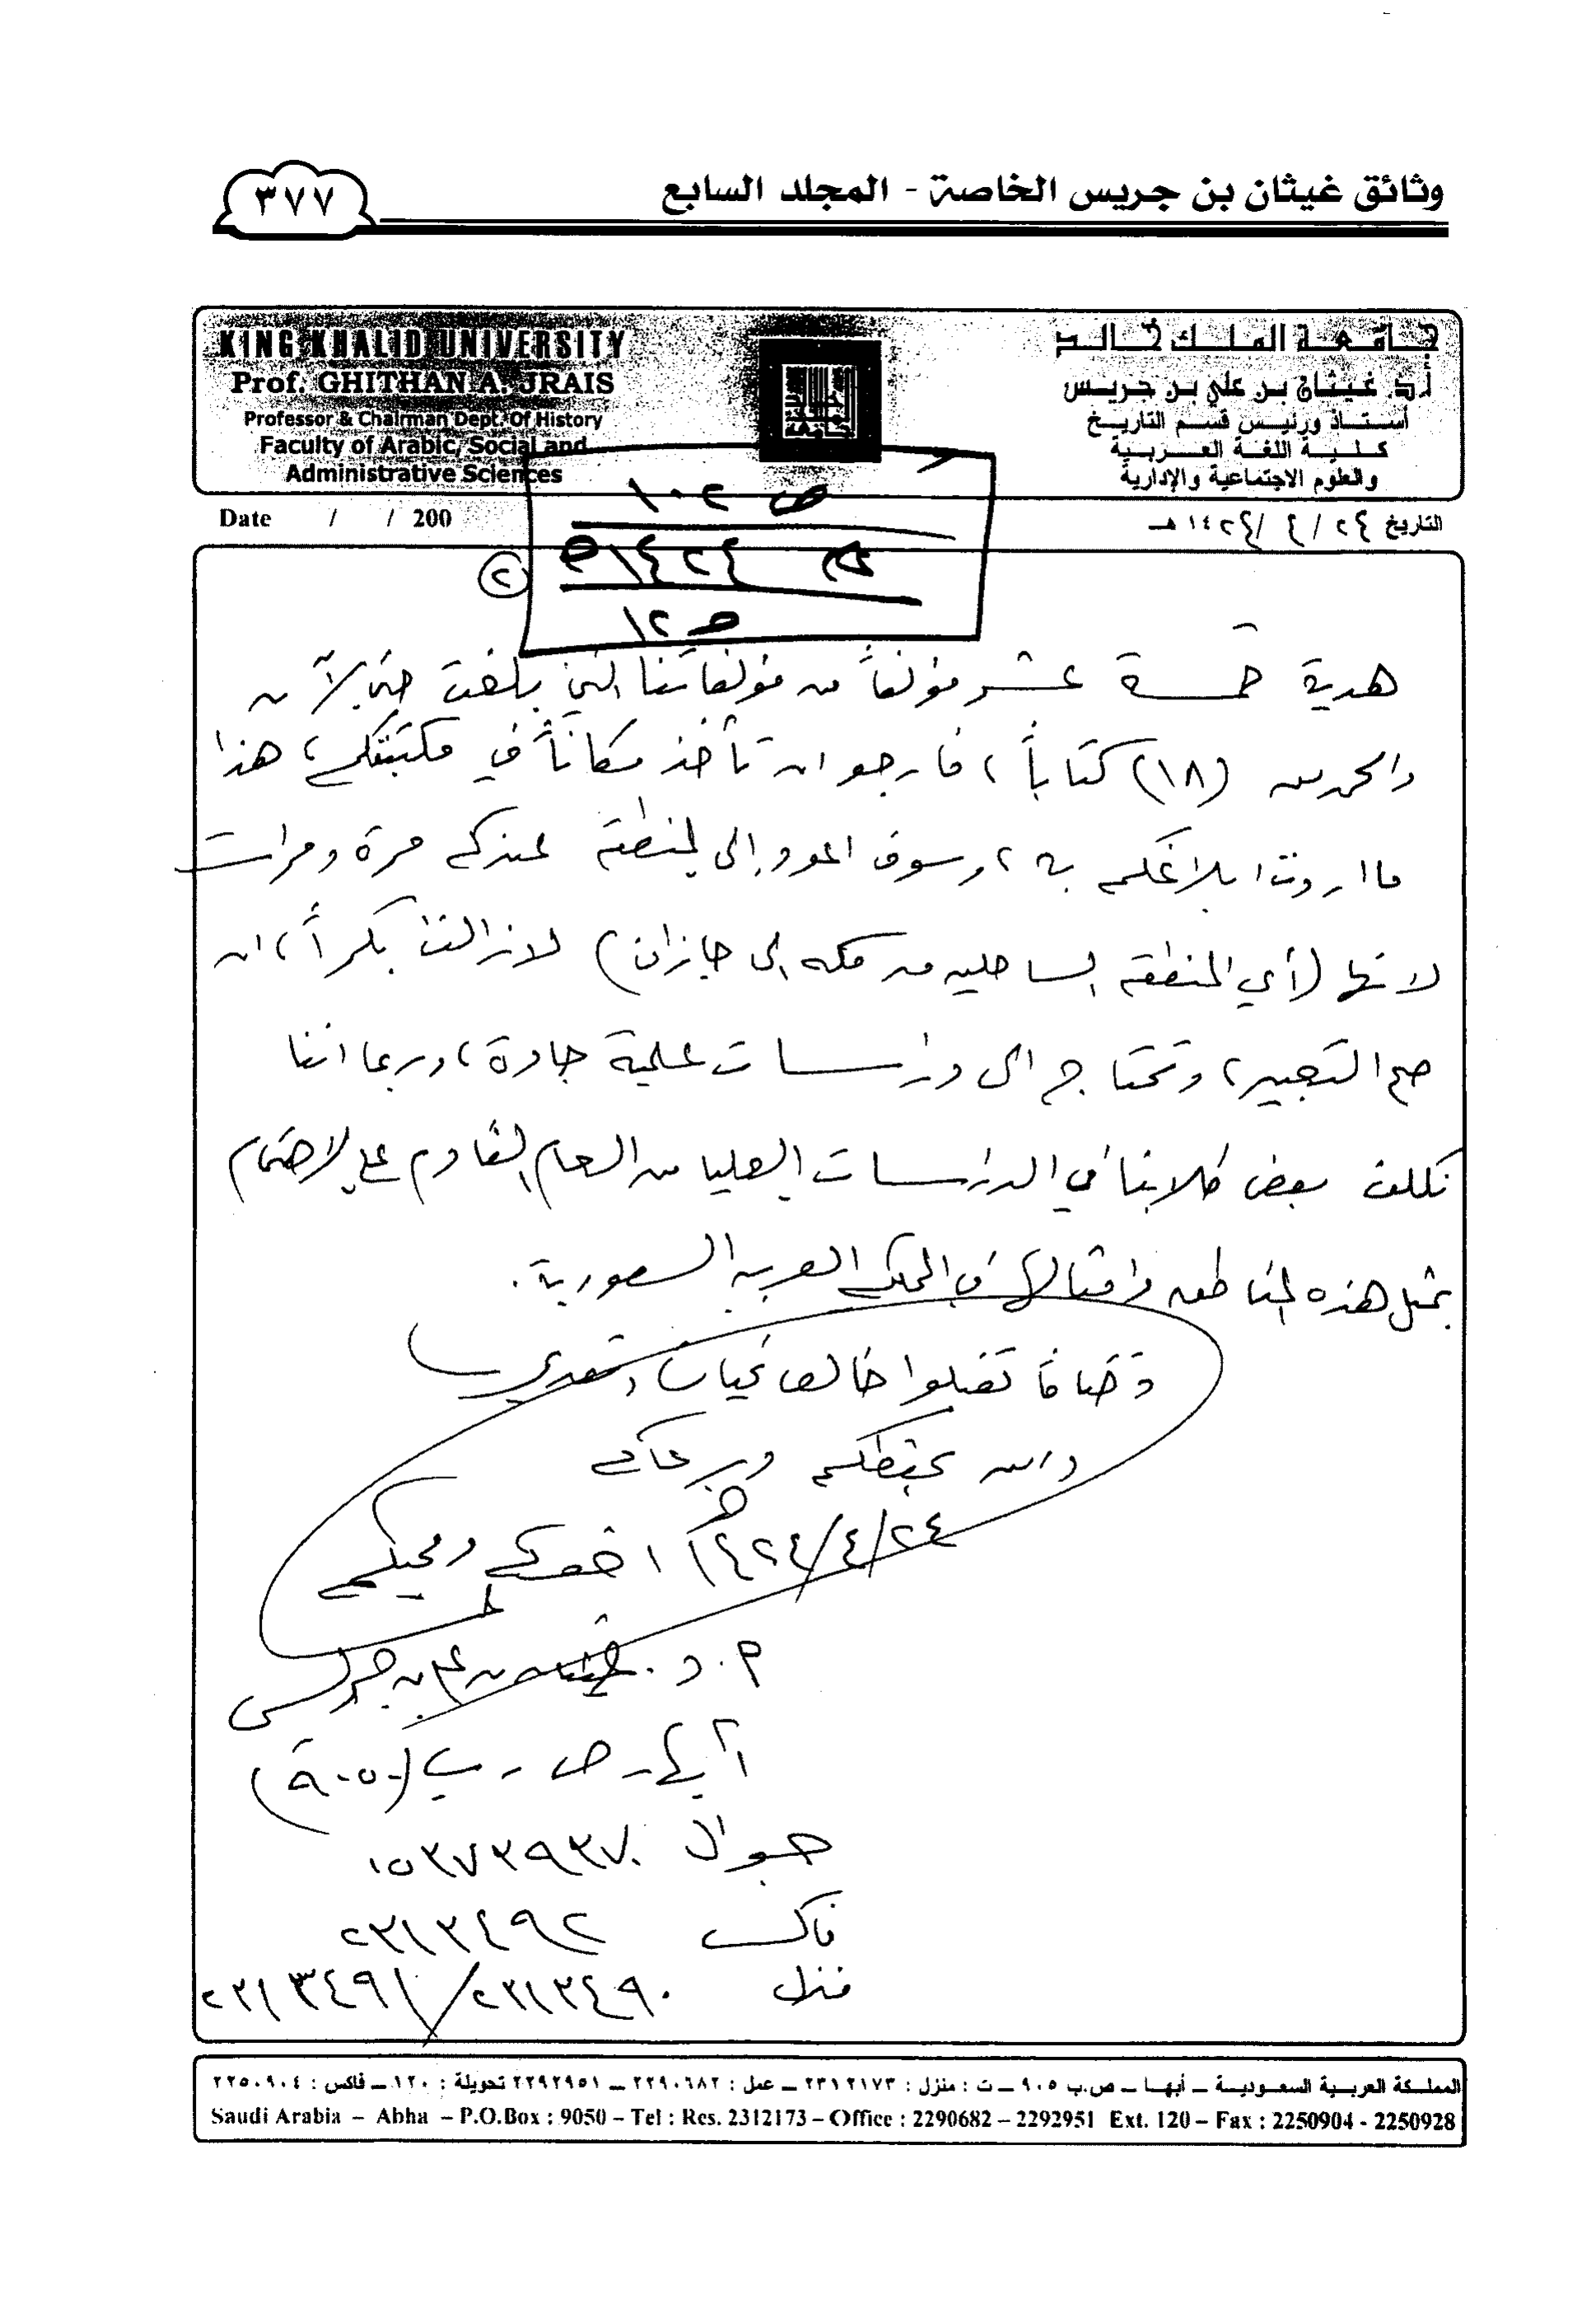 وثائق غيثان بن جريس الخاصة - المجلد السابع
٣٧٧
جامعة الملك خالد
أ.د. غيثان بن علي بن جريس
أستاذ ورئيس قسم التاريخ
كلية اللغة العربية
والعلوم الاجتماعية والإدارية
KING KHALID UNIVERSITY
Prof. GHITHAN A. JRAIS
Professor & Chairman Dept. Of History
Faculty of Arabic, Social and
Administrative Sciences
التاريخ ٢٤ / ٤ / ١٤٢٤ هـ
Date / / 200
ص ١٠٢
١٤٢٤هـ
ص ١٢
٢
هدية خمسة عشر مؤلفاً من مؤلفاتنا التي بلغت حتى الآن
والحمد لله (١٨) كتاباً، فارجو ان تأخذ مكاناً في مكتبتكم، هذا
ما اردت ابلاغكم به، وسوف اعود إلى المنطقة عندكم مرة ومرات
لانها (أي المنطقة الساحلية من مكة إلى جازان) لازالت بكراً، ان
صح التعبير، وتحتاج الى دراسات علمية جادة، وربما اننا
نكلف بعض طلابنا في الدراسات العليا من العام القادم على الاهتمام
بمثل هذه المناطق وامثالها في المملكة العربية السعودية.
وختاماً تقبلوا خالص تحيات وتقديري
والله يحفظكم ويرعاكم
٢٤/٤/١٤٢٤هـ اخوكم ومحبكم
أ.د. غيثان بن علي بن جريس
أبها - ص . ب (٩٠٥٠)
جوال ٠٥٣٧٣٩٣٧٠
فاكس ٢٣١٣٤٩٢
منزل ٢٣١٣٤٩٠ / ٢٣١٣٤٩١
المملكة العربية السعودية ــ أبهـا ــ ص.ب ٩٠٥ ــ ت : منزل : ٢٣١٢١٧٣ ــ عمل : ٢٢٩٠٦٨٢ ــ ٢٢٩٢٩٥١ تحويلة : ١٢٠ ــ فاكس : ٢٢٥٠٩٠٤
Saudi Arabia – Abha – P.O.Box : 9050 – Tel : Res. 2312173 – Office : 2290682 – 2292951 Ext. 120 – Fax : 2250904 - 2250928